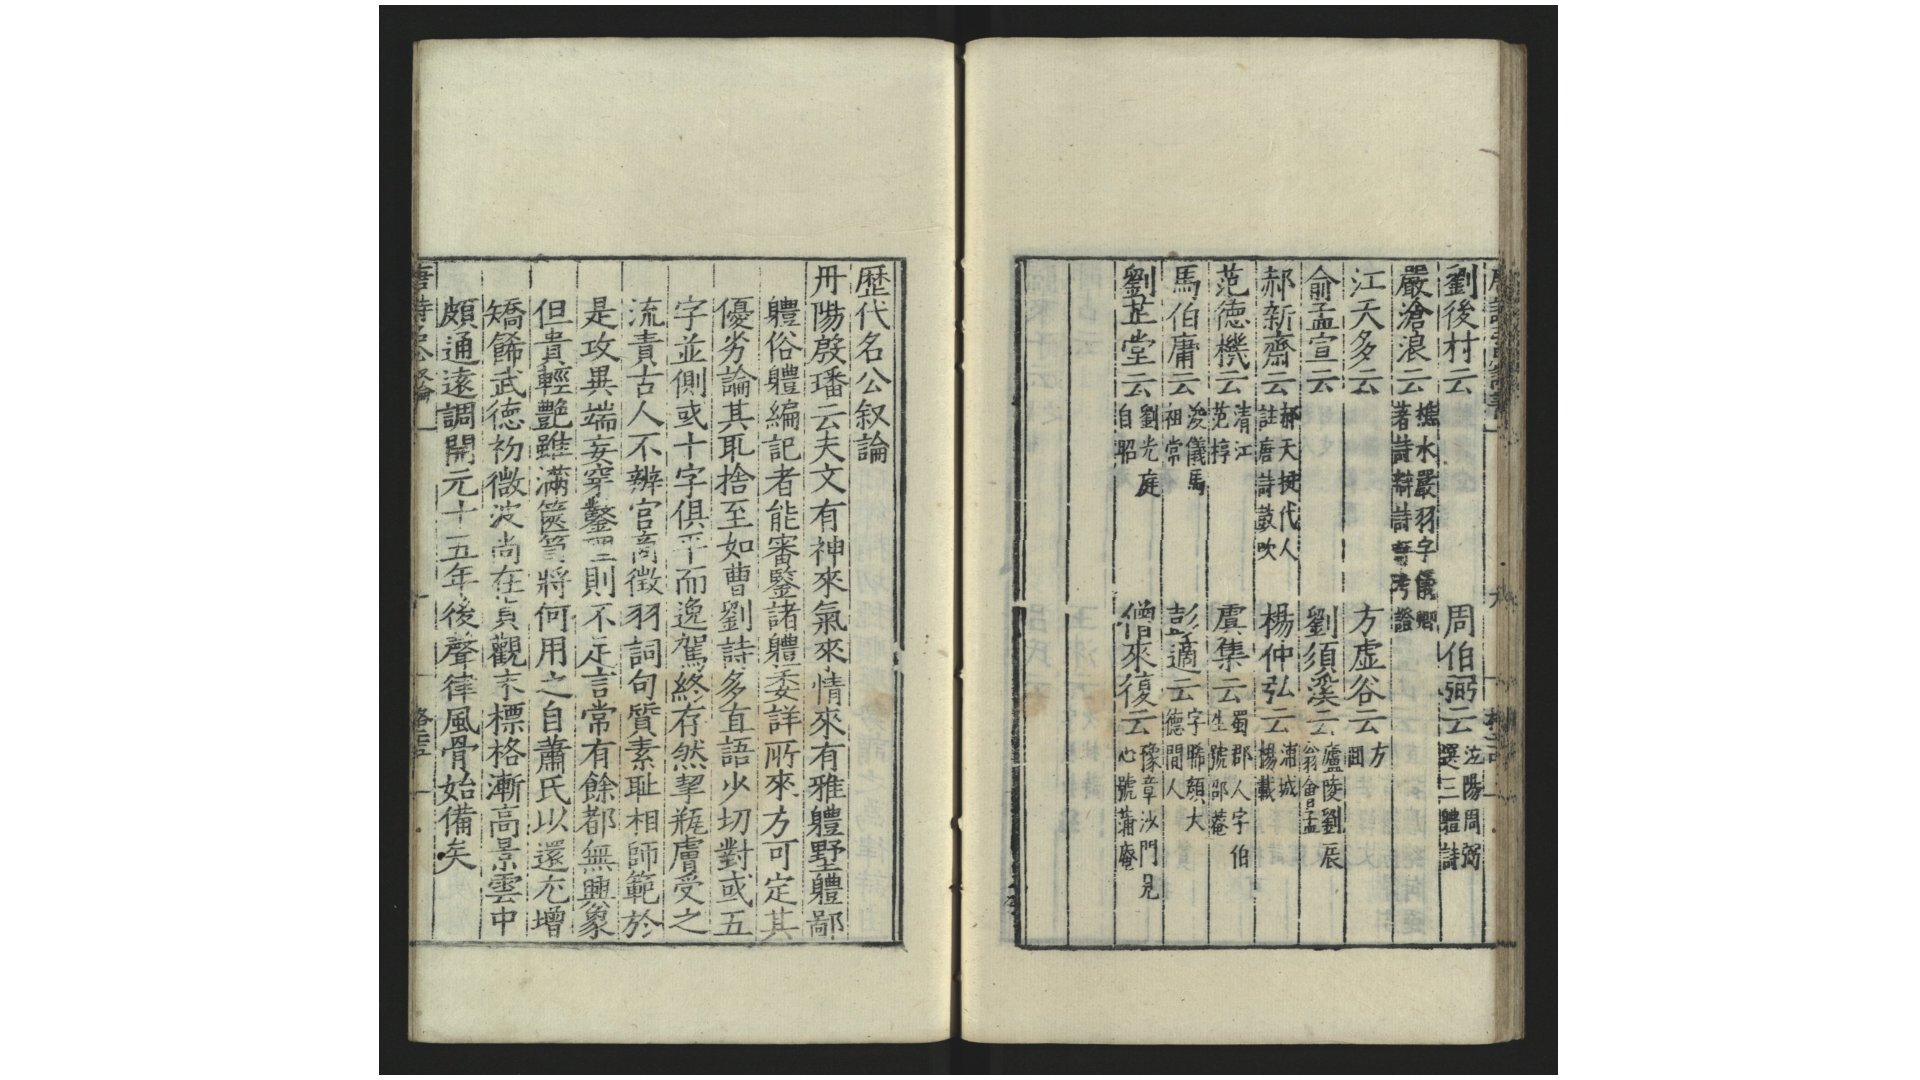 劉後村云 周伯弜云 汶陽周弼選三體詩
嚴滄浪云 樵水嚴羽字儀卿著詩辯詩評考證
江天多云 方虛谷云 方回
俞孟宣云 劉須溪云 廬陵劉辰翁會孟
郝新齋云 郝天挺代人註唐詩鼓吹 楊仲弘云 浦城楊載
范德機云 清江范梈 虞集云 蜀郡人字伯生號邵菴
馬伯庸云 浚儀馬祖常 彭適云 字聯頟大德間人
劉芷堂云 劉光庭自昭 僧來復云 豫章沙門見心號蒲庵
歷代名公叙論
丹陽殷璠云夫文有神來氣來情來有雅體野體鄙
體俗體編記者能審鑒諸體委詳所來方可定其
優劣論其取捨至如曹劉詩多直語少切對或五
字並側或十字俱平而逸駕終存然挈瓶膚受之
流責古人不辨宮商徵羽詞句質素耻相師範於
是攻異端妄穿鑿理則不足言常有餘都無興象
但貴輕艷雖滿篋笥將何用之自蕭氏以還尤增
矯餙武德初微波尚在貞觀末標格漸高景雲中
頗通遠調開元十五年後聲律風骨始備矣